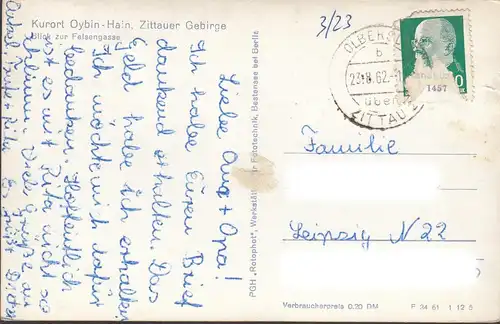 Kurort Oybin-Hain, Zittauer Gebirge
Blick zur Felsengasse
3/23
OLBERSD
b
23.8.62
über
ZITTAU
1457
Liebe Oma + Opa!
Ich habe Euren Brief
dankend erhalten. Das
Geld habe ich erhalten
Ich möchte mich dafür
bedanken. Hoffentlich
ist es mit Rita nicht so
schlimm. Viele Grüße an
Onkel
Dieter
PGH „Rotophot", Werkstätten für Fototechnik, Bestensee bei Berlin
Familie
Leipzig N 22
Verbraucherpreis 0.20 DM
F 34 61 1 12 6